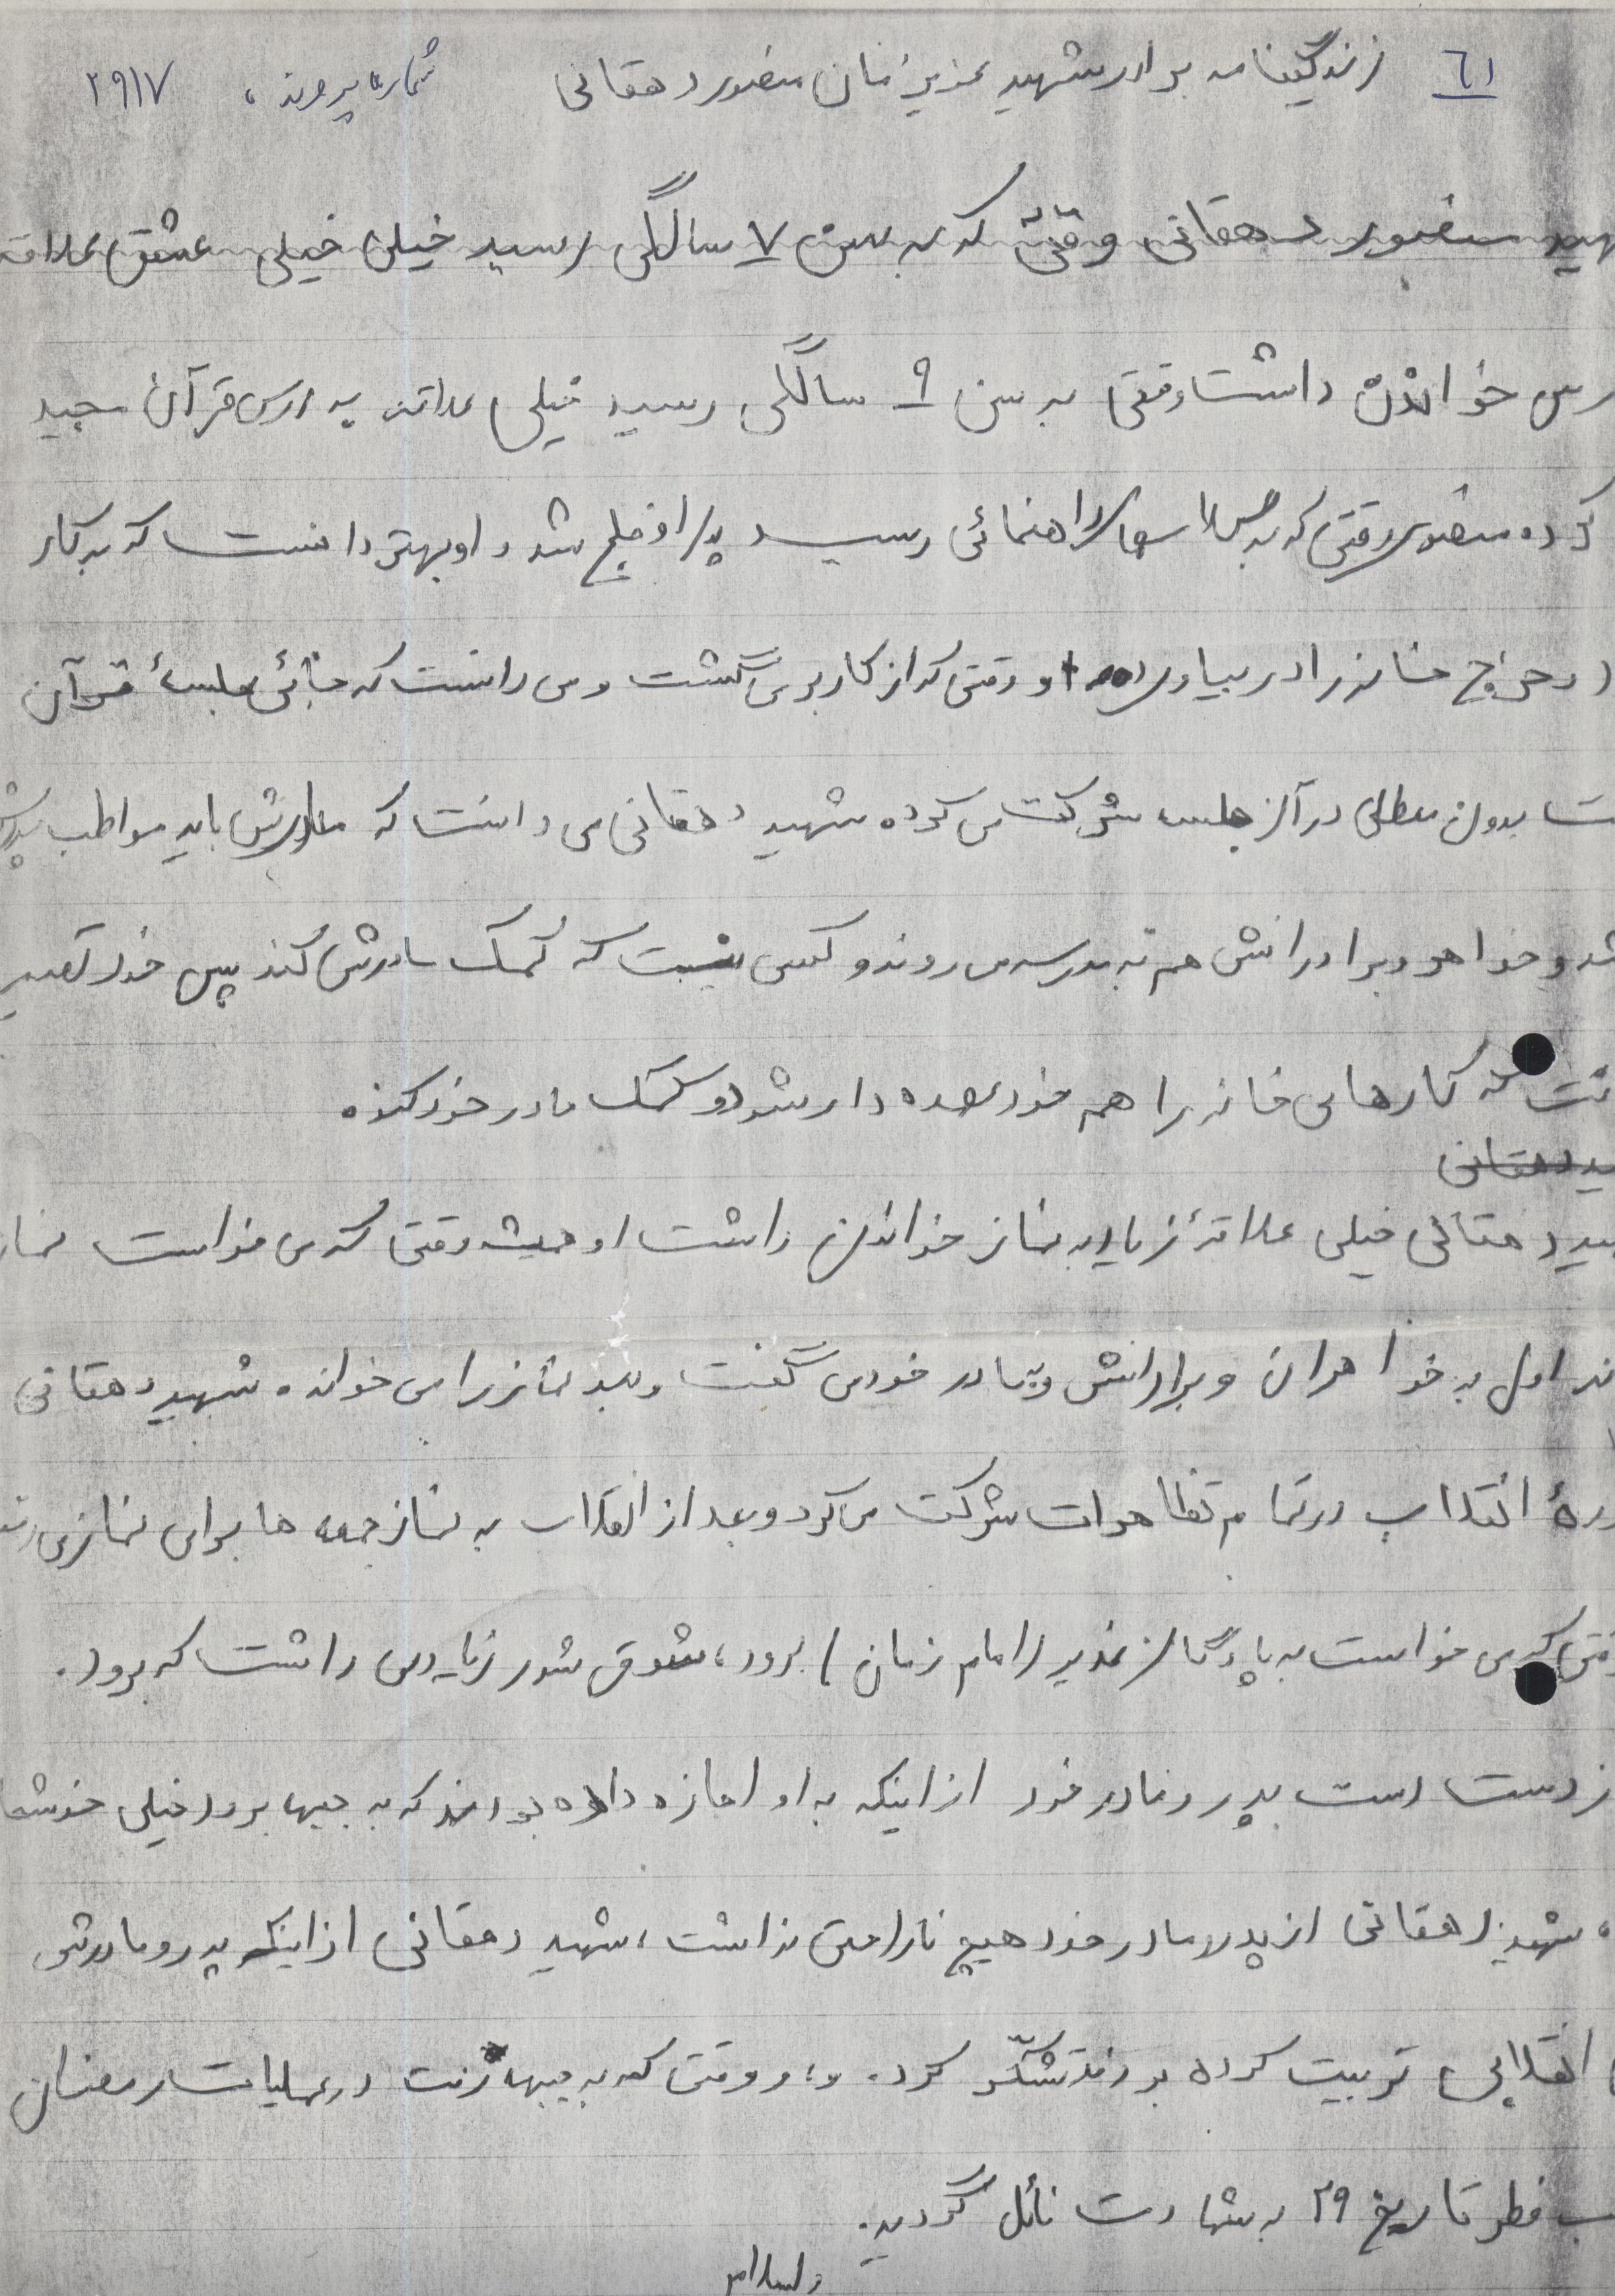 ٦١ زندگینامه برادر شهید عزیزمان منصور دهقانی شماره پرونده، ٢٩١٧
هید منصور دهقانی وقتی که به سن ٧ سالگی رسید خیلی خیلی عشق علاقه
رس خواندن داشت وقتی به سن ٩ سالگی رسید خیلی علاقه به درس قرآن مجید
کرده منصور وقتی که به کلاس راهنمائی رسید پدر او فلج شد و او بهتر دانست که به کار
رود خرج خانه را در بیاورد او وقتی که از کار بر می گشت و می دانست که جائی جلسهٔ قرآن
ت بدون معطلی در آن جلسه شرکت می کرده شهید دهقانی می دانست که مادرش باید مواظب پدرش
شد و خواهر و برادرانش هم به مدرسه می روند و کسی نیست که کمک مادرش کند پس خود تصمیم
فت که کارهای خانه را هم خود عهده دار شود و کمک مادر خود کند
ید دهقانی
هید دهقانی خیلی علاقهٔ زیاد به نماز خواندن داشت او همیشه وقتی که می خواست نماز
ند اول به خواهران و برادرانش و به مادر خود می گفت و بعد نماز را می خواند. شهید دهقانی
ورهٔ انقلاب در تمام تظاهرات شرکت می کرد و بعد از انقلاب به نماز جمعه ها برای نماز می رفت
وقتی که می خواست به پادگان غدیر (امام زمان) برود، شوق شور زیادی داشت که برود.
ز دست پدر و مادر خود از اینکه به او اجازه داده بودند که به جبهه برود خیلی خوشحا
، شهید دهقانی از پدر و مادر خود هیچ ناراحتی نداشت، شهید دهقانی از اینکه پدر و مادرش
انقلابی تربیت کرده بودند تشکّر کرد. و وقتی که به جبهه رفت در عملیات رمضان
ب فطر تاریخ ٢٩ به شهادت نائل گردید.
والسلام